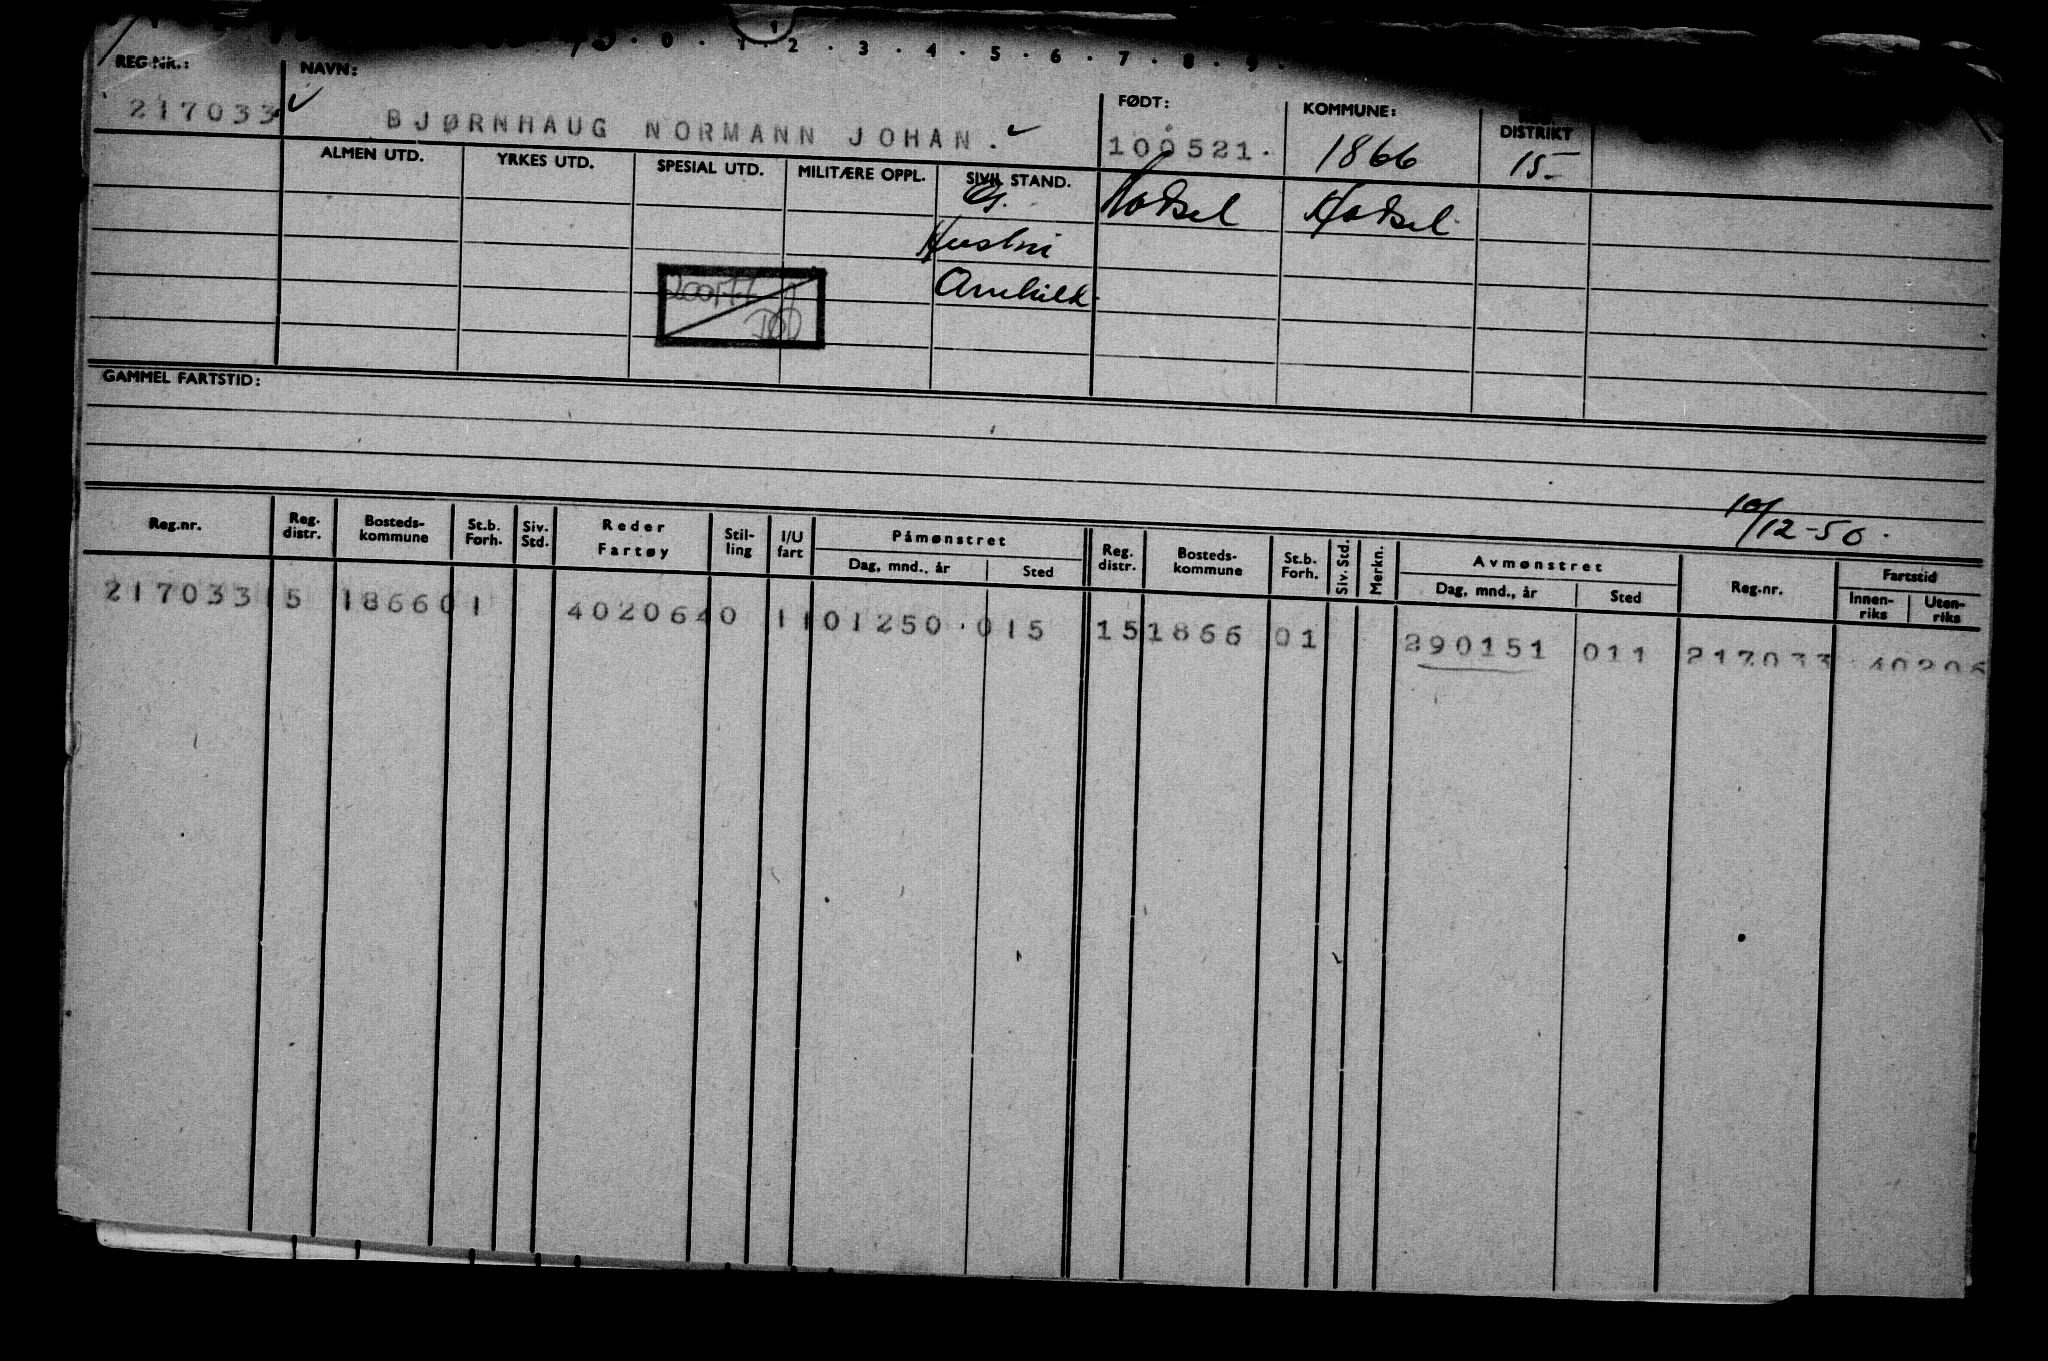 · 0 · 1 · 2 · 3 · 4 · 5 · 6 · 7 · 8 · 9 ·
REG.NR.: NAVN: FØDT: KOMMUNE: DISTRIKT
217033 ✓ BJØRNHAUG NORMANN JOHAN. ✓ 100521. 1866 15-
ALMEN UTD. YRKES UTD. SPESIAL UTD. MILITÆRE OPPL. SIVIL STAND.
G. Hadsel Hadsel
Hustru
Arnhild
DØD
GAMMEL FARTSTID:
10/12-50.
Reg.nr. Reg. distr. Bosteds-kommune St.b. Forh. Siv. Std. Reder Fartøy Stil-ling I/U fart Påmønstret Dag, mnd., år Sted Reg. distr. Bosteds-kommune St.b. Forh. Siv. Std. Merkn. Avmønstret Dag, mnd., år Sted Reg.nr. Fartstid Innen-riks Uten-riks
217033 15 1866 01 402064 0 1 101250 · 015 15 1866 01 290151 011 217033 40206